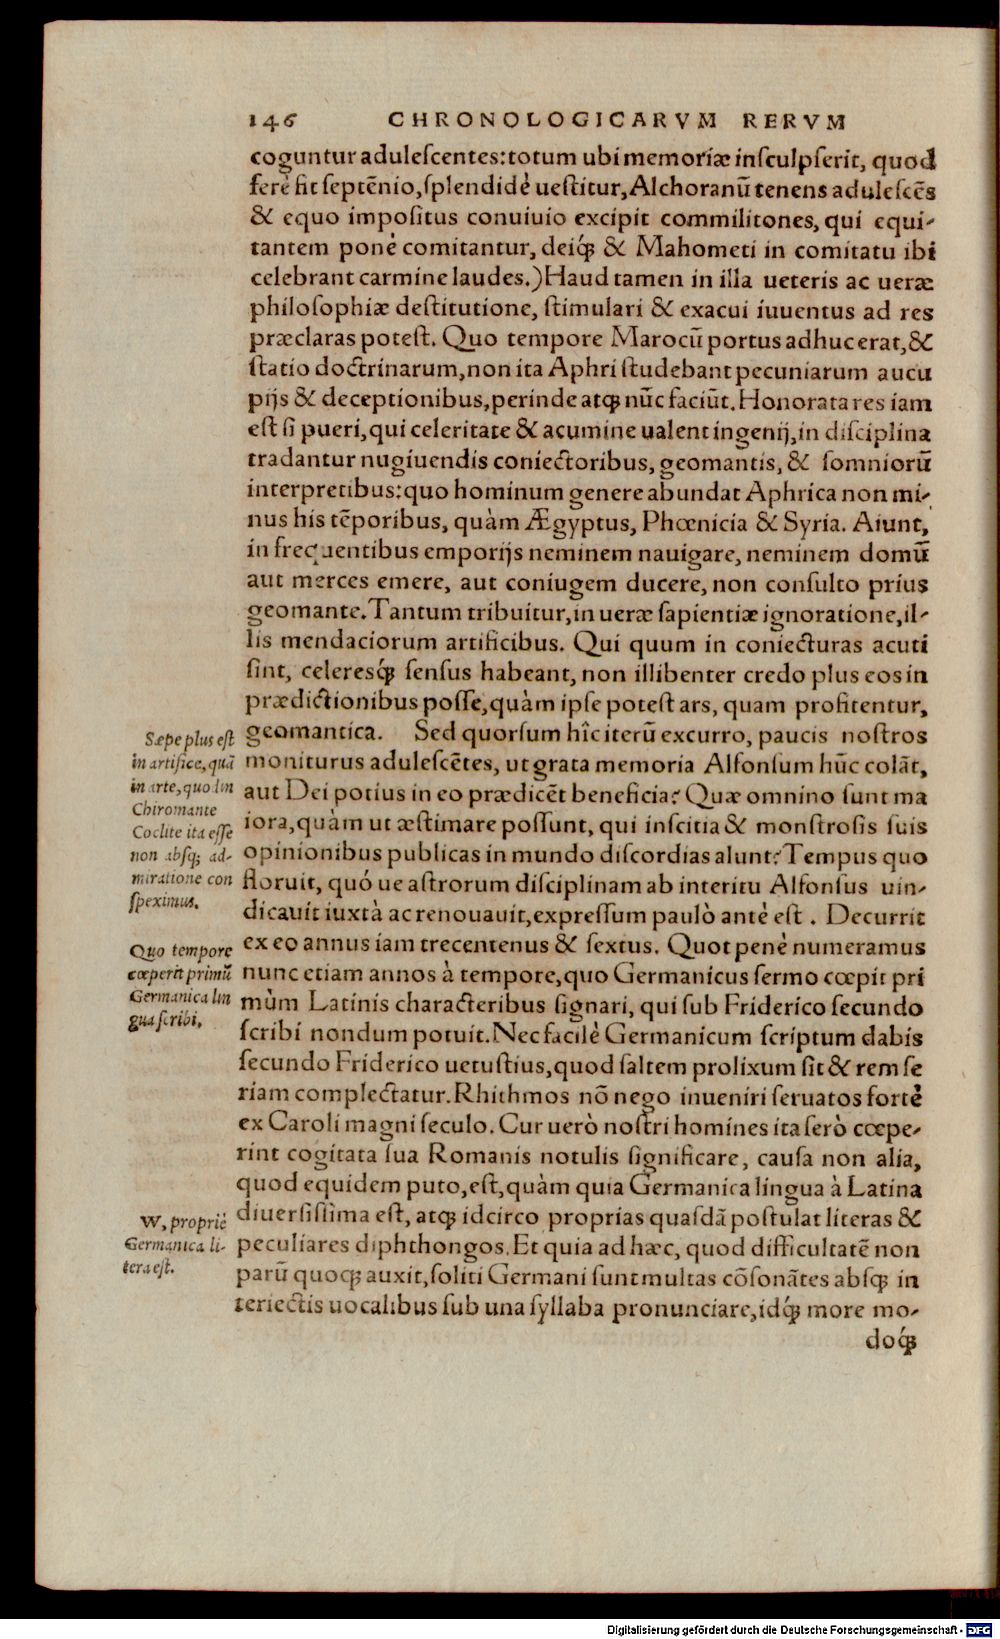 146 CHRONOLOGICARVM RERVM
coguntur adulescentes: totum ubi memoriæ insculpserit, quod
ferè fit septẽnio, splendidè uestitur, Alchoranũ tenens adulescẽs
& equo impositus conuiuio excipit commilitones, qui equi-
tantem ponè comitantur, deiq́; & Mahometi in comitatu ibi
celebrant carmine laudes.) Haud tamen in illa ueteris ac ueræ
philosophiæ destitutione, stimulari & exacui iuuentus ad res
præclaras potest. Quo tempore Marocũ portus adhuc erat, &
statio doctrinarum, non ita Aphri studebant pecuniarum aucu
pijs & deceptionibus, perinde atq; nũc faciũt. Honorata res iam
est si pueri, qui celeritate & acumine ualent ingenij, in disciplina
tradantur nugiuendis coniectoribus, geomantis, & somniorũ
interpretibus: quo hominum genere abundat Aphrica non mi-
nus his tẽporibus, quàm Ægyptus, Phœnicia & Syria. Aiunt,
in frequentibus emporijs neminem nauigare, neminem domũ
aut merces emere, aut coniugem ducere, non consulto prius
geomante. Tantum tribuitur, in ueræ sapientiæ ignoratione, il-
lis mendaciorum artificibus. Qui quum in coniecturas acuti
sint, celeresq́; sensus habeant, non illibenter credo plus eos in
prædictionibus posse, quàm ipse potest ars, quam profitentur,
geomantica. Sed quorsum hîc iterũ excurro, paucis nostros
moniturus adulescẽtes, ut grata memoria Alfonsum hũc colãt,
aut Dei potius in eo prædicẽt beneficia? Quæ omnino sunt ma
iora, quàm ut æstimare possunt, qui inscitia & monstrosis suis
opinionibus publicas in mundo discordias alunt? Tempus quo
floruit, quó ue astrorum disciplinam ab interitu Alfonsus uin-
dicauit iuxtà ac renouauit, expressum paulò antè est. Decurrit
ex eo annus iam trecentenus & sextus. Quot penè numeramus
nunc etiam annos à tempore, quo Germanicus sermo cœpit pri
mùm Latinis characteribus signari, qui sub Friderico secundo
scribi nondum potuit. Nec facilè Germanicum scriptum dabis
secundo Friderico uetustius, quod saltem prolixum sit & rem se
riam complectatur. Rhithmos nõ nego inueniri seruatos fortè
ex Caroli magni seculo. Cur uerò nostri homines ita serò cœpe-
rint cogitata sua Romanis notulis significare, causa non alia,
quod equidem puto, est, quàm quia Germanica lingua à Latina
diuersissima est, atq; idcirco proprias quasdã postulat literas &
peculiares diphthongos. Et quia ad hæc, quod difficultatẽ non
parũ quoq; auxit, soliti Germani sunt multas cõsonãtes absq; in
teriectis uocalibus sub una syllaba pronunciare, idq́; more mo-
doq́;
Sæpe plus est
in artifice, quã
in arte, quo lin
Chiromante
Coclite ita esse
non absq; ad-
miratione con
speximus.
Quo tempore
cœperit primũ
Germanica lin
gua scribi.
W, propriè
Germanica li-
tera est.
Digitalisierung gefördert durch die Deutsche Forschungsgemeinschaft - DFG